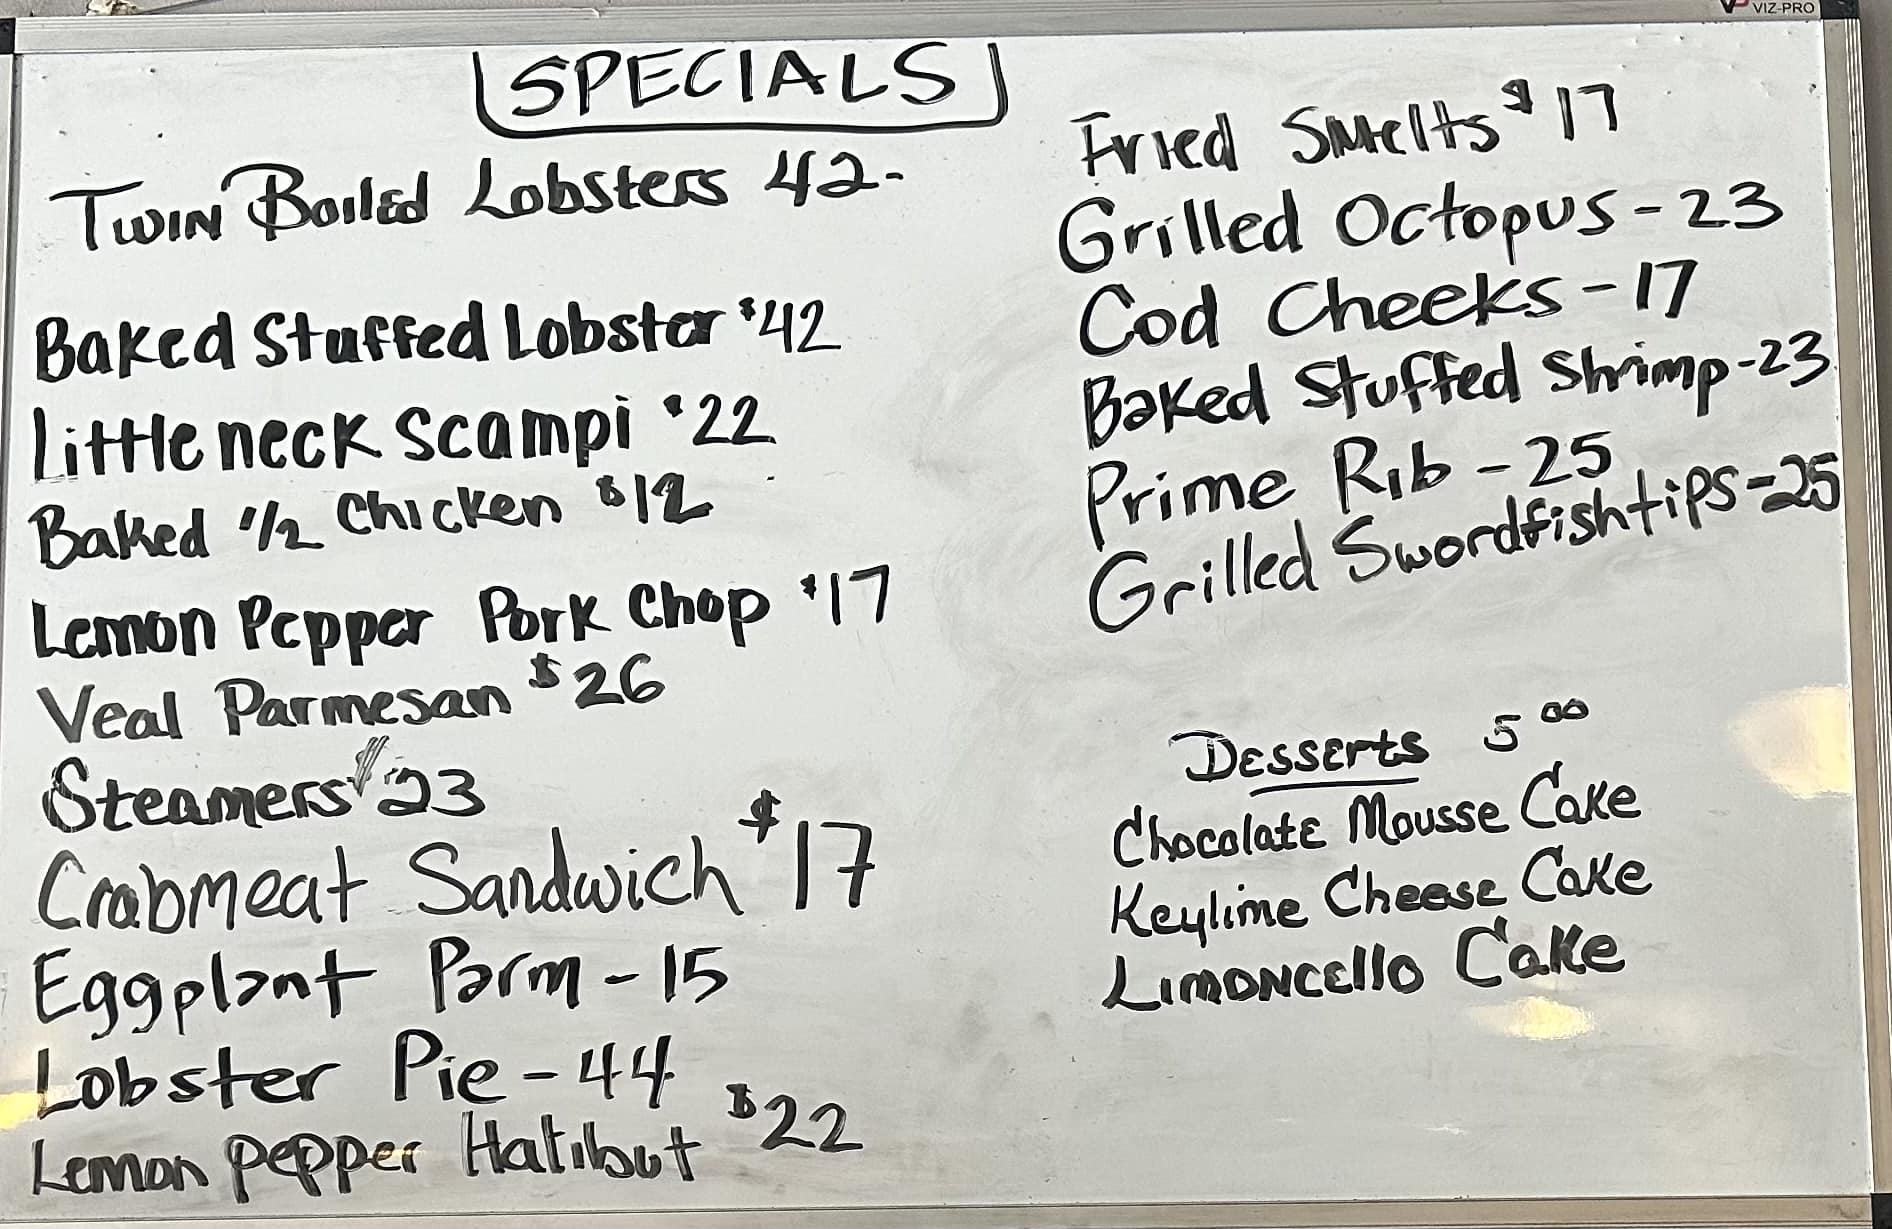 VIZ-PRO
SPECIALS
Twin Boiled Lobsters 42-
Baked Stuffed Lobster $42
Littleneck Scampi $22
Baked 1/2 Chicken $12
Lemon Pepper Pork Chop $17
Veal Parmesan $26
Steamers 23
Crabmeat Sandwich $17
Eggplant Parm - 15
Lobster Pie - 44
Lemon pepper Halibut $22
Fried Smelts $17
Grilled Octopus - 23
Cod Cheeks - 17
Baked Stuffed Shrimp - 23
Prime Rib - 25
Grilled Swordfishtips - 25
Desserts 5 00
Chocolate Mousse Cake
Keylime Cheese Cake
Limoncello Cake